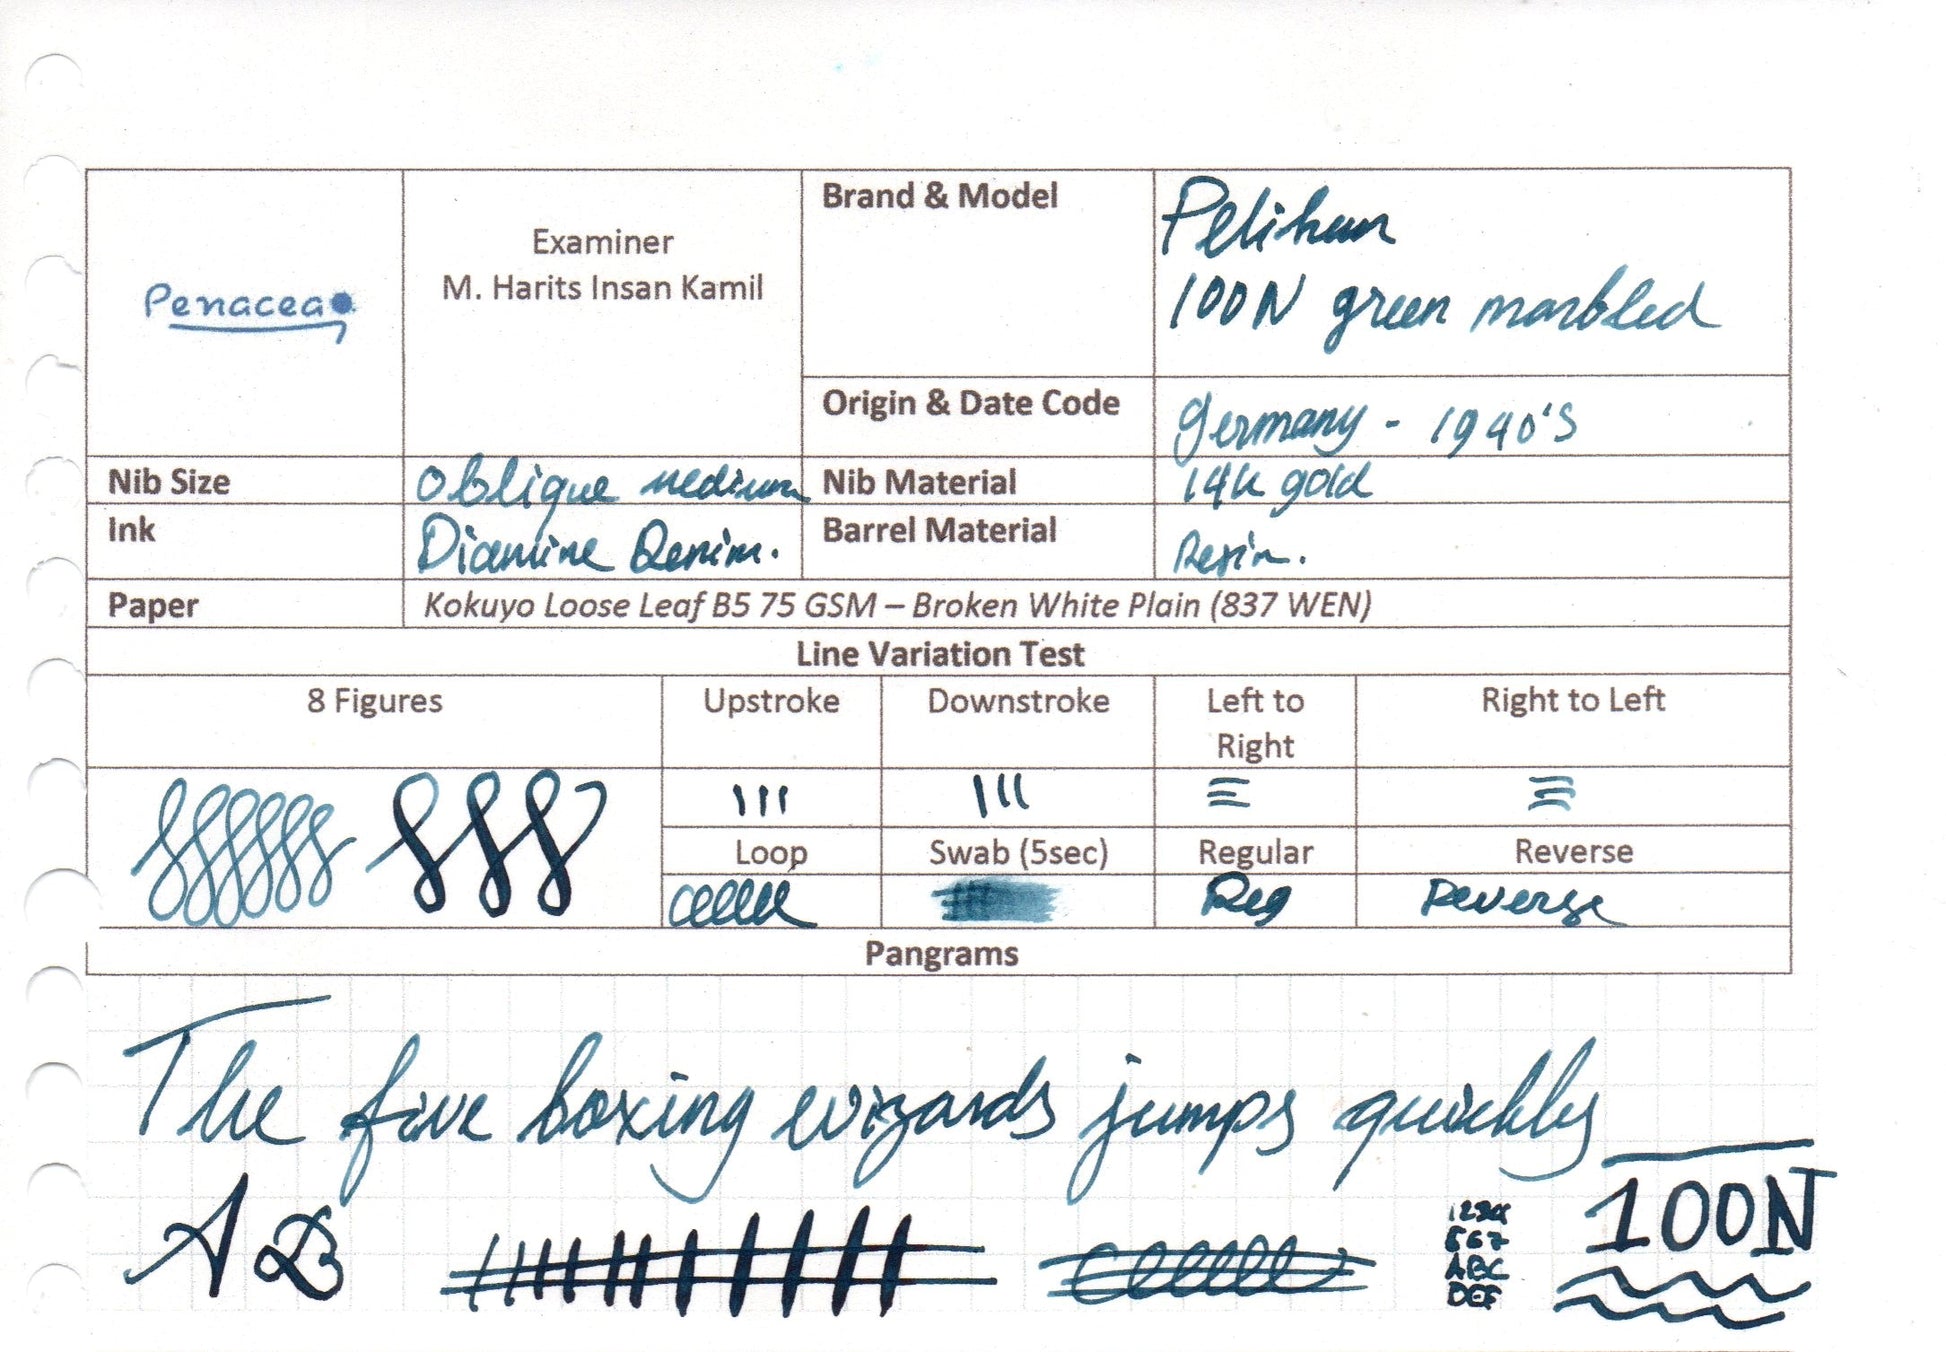 Penacea
Examiner
M. Harits Insan Kamil
Brand & Model
Pelikan
100N green marbled
Origin & Date Code
Germany - 1940's
Nib Size
Oblique medium
Nib Material
14k gold
Ink
Diamine Denim.
Barrel Material
Resin.
Paper
Kokuyo Loose Leaf B5 75 GSM – Broken White Plain (837 WEN)
Line Variation Test
8 Figures
Upstroke
Downstroke
Left to
Right
Right to Left
Loop
Swab (5sec)
Regular
Reverse
Reg
Reverse
Pangrams
The five boxing wizards jumps quickly
A B
1234
567
ABC
DEF
100N